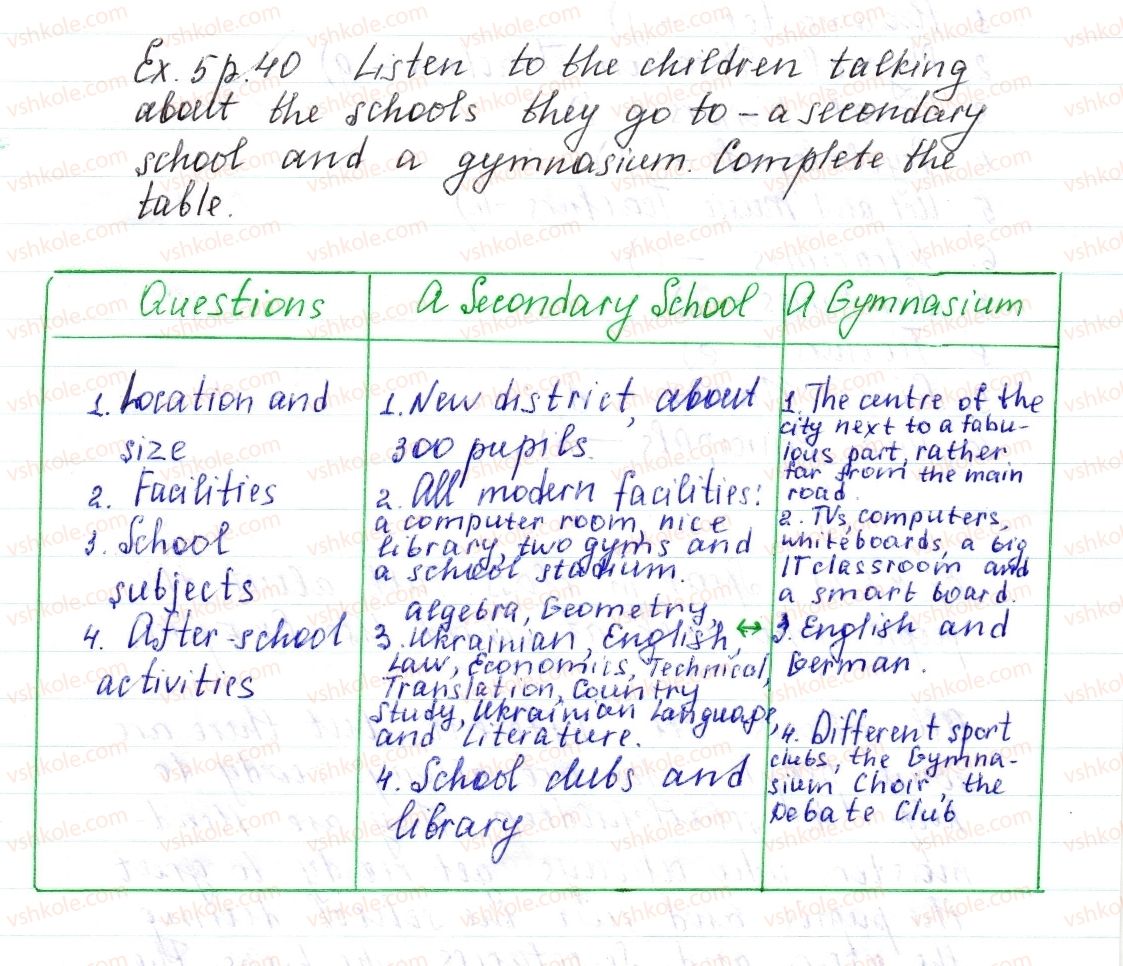 Ex. 5 p. 40 Listen to the children talking
about the schools they go to – a secondary
school and a gymnasium. Complete the
table.
Questions
A Secondary School
A Gymnasium
1. Location and
size
2. Facilities
3. School
subjects
4. After-school
activities
1. New district, about
300 pupils.
2. All modern facilities:
a computer room, nice
library, two gyms and
a school stadium.
algebra, Geometry,
3. Ukrainian, English, ↔
Law, Economics, Technical,
Translation, Country
Study, Ukrainian Language,
and Literature.
4. School clubs and
library
1. The centre of the
city next to a fabu-
lous part, rather
far from the main
road.
2. TVs, computers,
whiteboards, a big
IT classroom and
a smart board.
3. English and
German.
4. Different sport
clubs, the Gymna-
sium Choir, the
Debate Club
vshkole.com